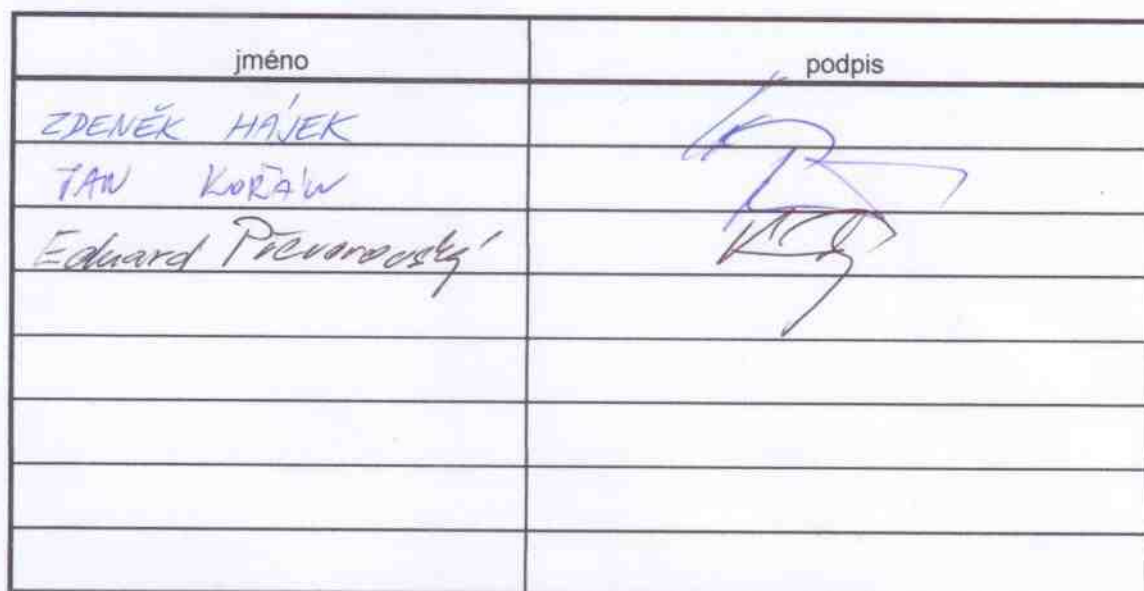 jméno podpis
ZDENĚK HÁJEK
JAN KOŘÁN
Eduard